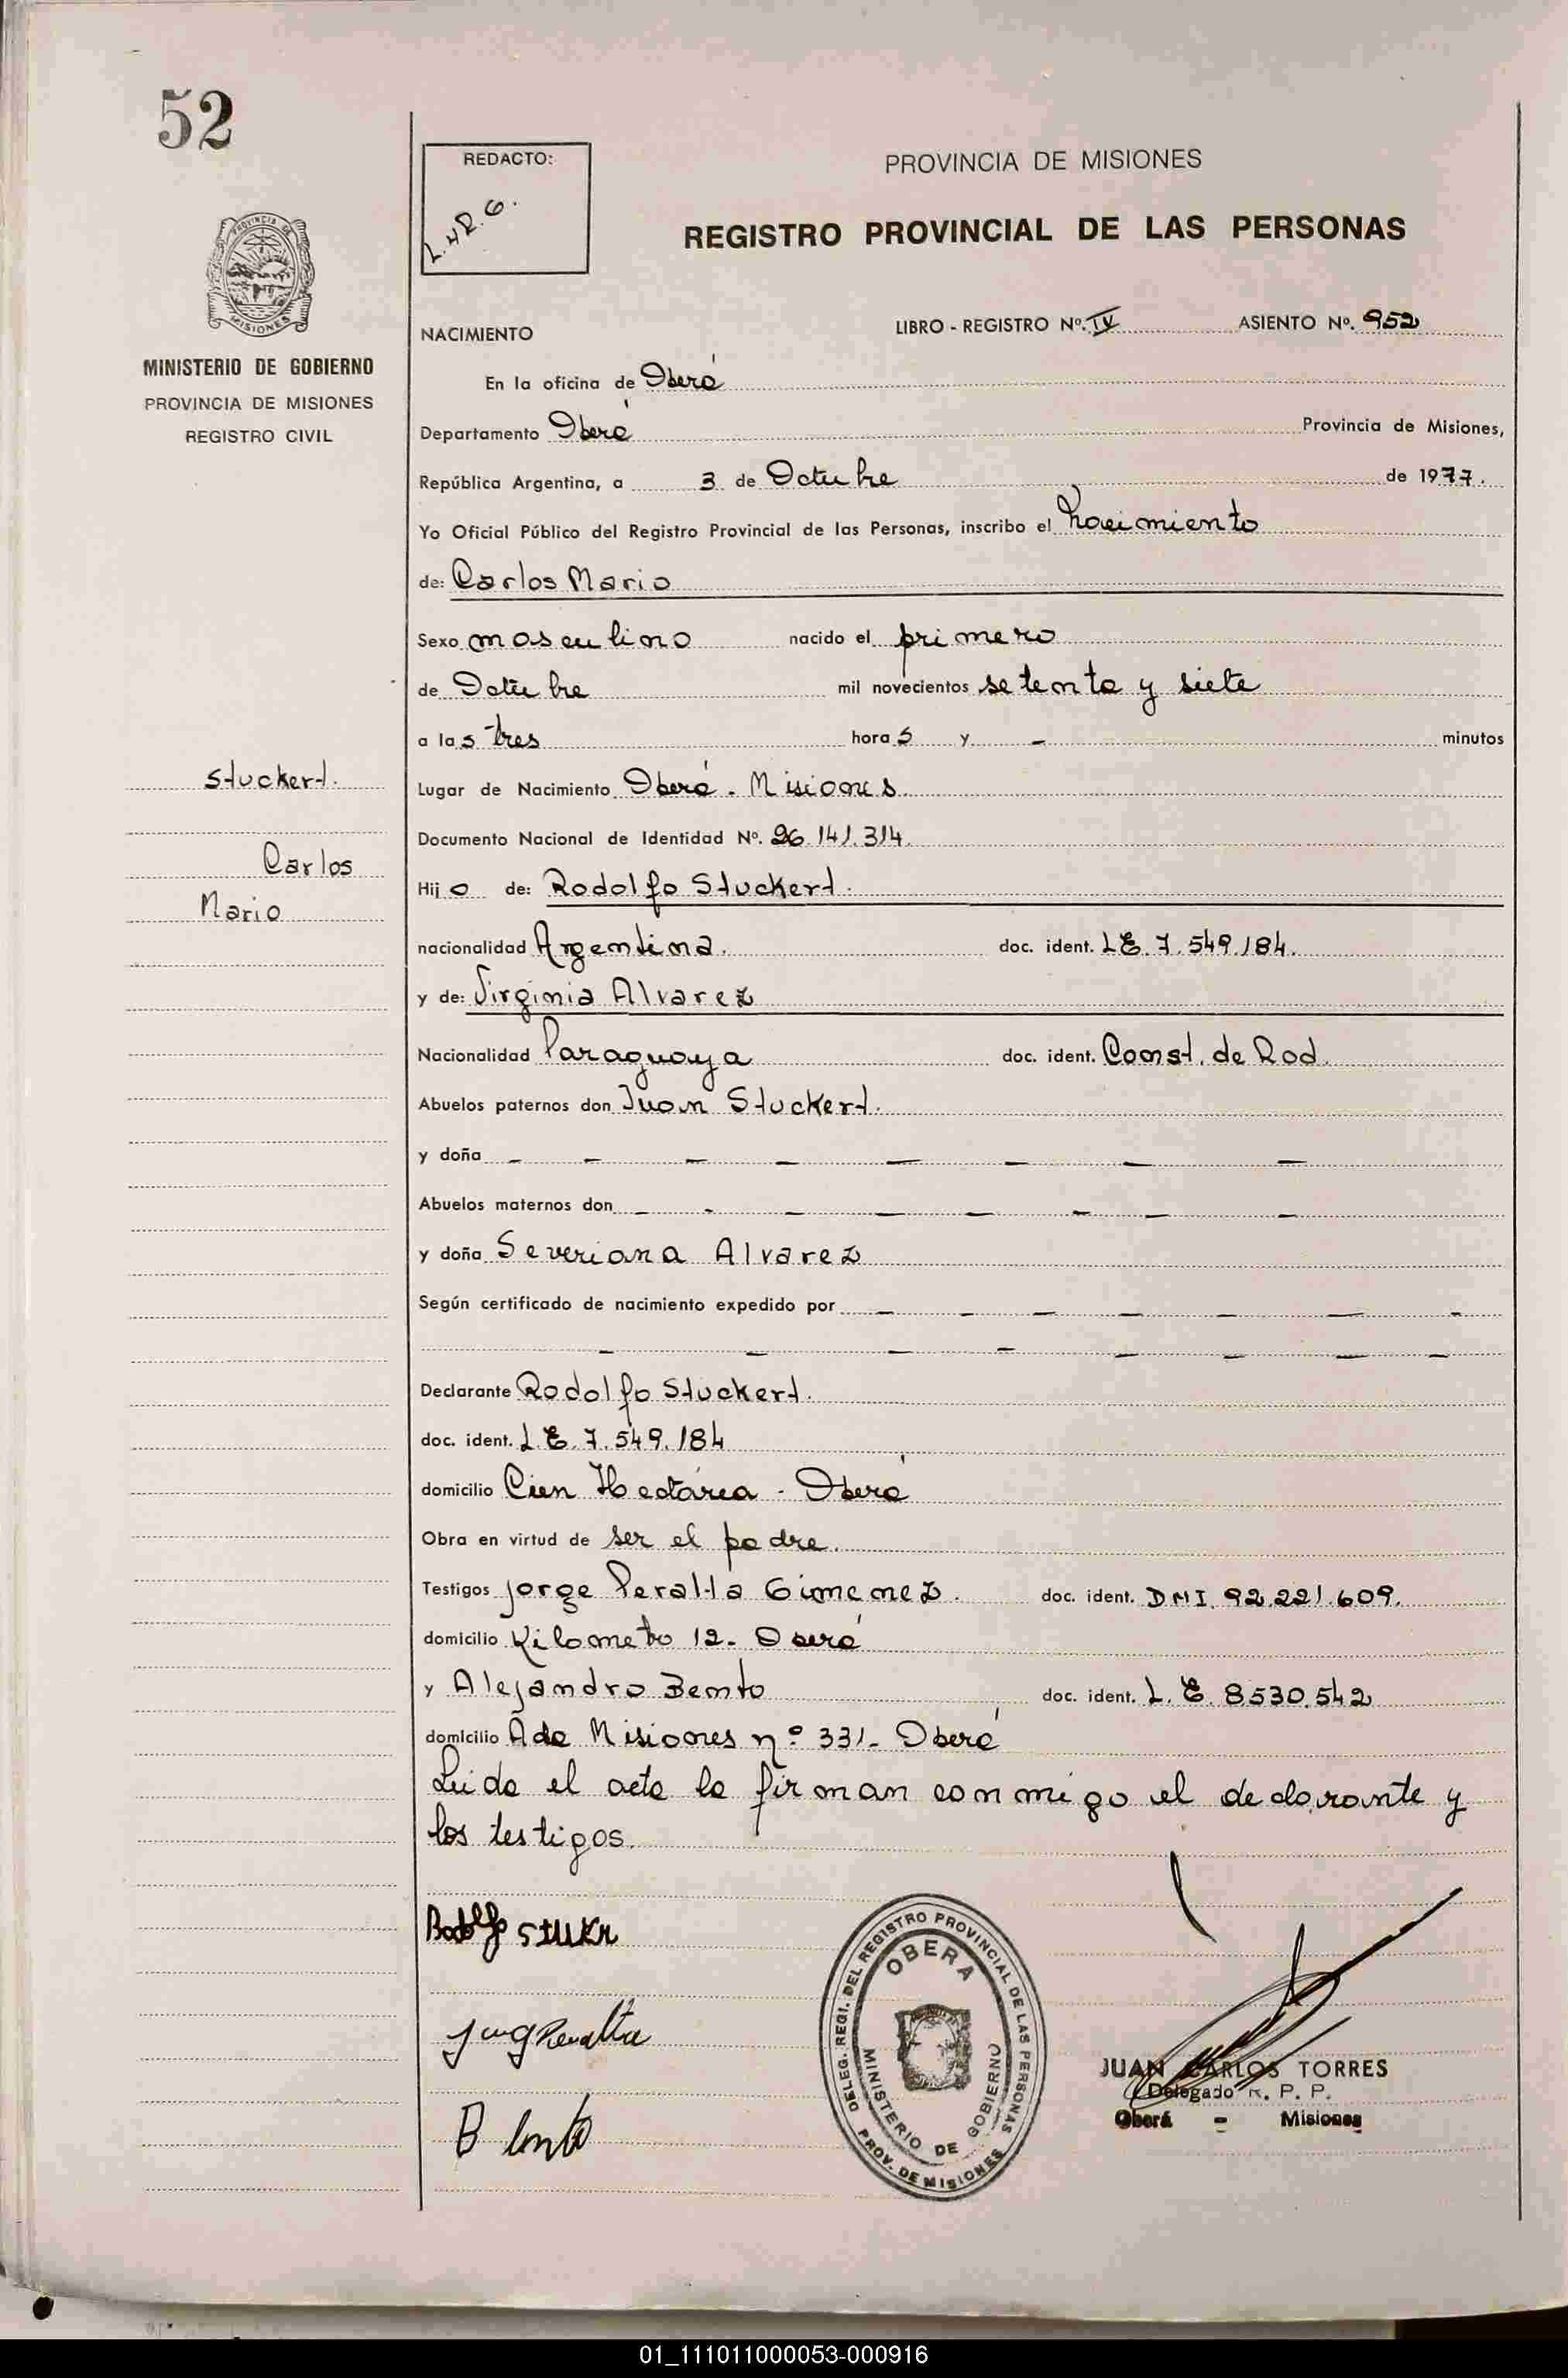 52
REDACTO:
PROVINCIA DE MISIONES
REGISTRO PROVINCIAL DE LAS PERSONAS
PROVINCIA DE
MISIONES
MINISTERIO DE GOBIERNO
PROVINCIA DE MISIONES
REGISTRO CIVIL
NACIMIENTO LIBRO - REGISTRO Nº. IV ASIENTO Nº. 952
En la oficina de Oberá
Departamento Oberá Provincia de Misiones,
República Argentina, a 3 de Octubre de 1977.
Yo Oficial Público del Registro Provincial de las Personas, inscribo el Nacimiento
de: Carlos Mario
Sexo masculino nacido el primero
de Octubre mil novecientos setenta y siete
a las tres horas y - minutos
Stuckert.
Lugar de Nacimiento Oberá. Misiones
Documento Nacional de Identidad Nº. 26.141.314.
Carlos
Hijo de: Rodolfo Stuckert.
Mario
nacionalidad Argentina. doc. ident. L E. 7.549.184.
y de: Virginia Alvarez
Nacionalidad Paraguaya doc. ident. Const. de Rad.
Abuelos paternos don Juan Stuckert.
y doña - - - - - - - -
Abuelos maternos don - - - - - - - -
y doña Severiana Alvarez
Según certificado de nacimiento expedido por - - - - - - -
- - - - - - - -
Declarante Rodolfo Stuckert.
doc. ident. L. E. 7.549.184
domicilio Cien Hectárea - Oberá
Obra en virtud de ser el padre.
Testigos Jorge Peralta Gimenez. doc. ident. DNI. 92.221.609.
domicilio Kilometro 12- Oberá
y Alejandro Bento doc. ident. L. E. 8530.542
domicilio Avda Misiones nº 331- Oberá
Leida el acta la firman conmigo el declarante y
los testigos.
Rodolfo
Peralta
DELEG. REGI. DEL REGISTRO PROVINCIAL DE LAS PERSONAS
OBERA
MINISTERIO DE GOBIERNO
PROV. DE MISIONES
JUAN CARLOS TORRES
Delegado R. P. P.
Oberá - Misiones
01_111011000053-000916